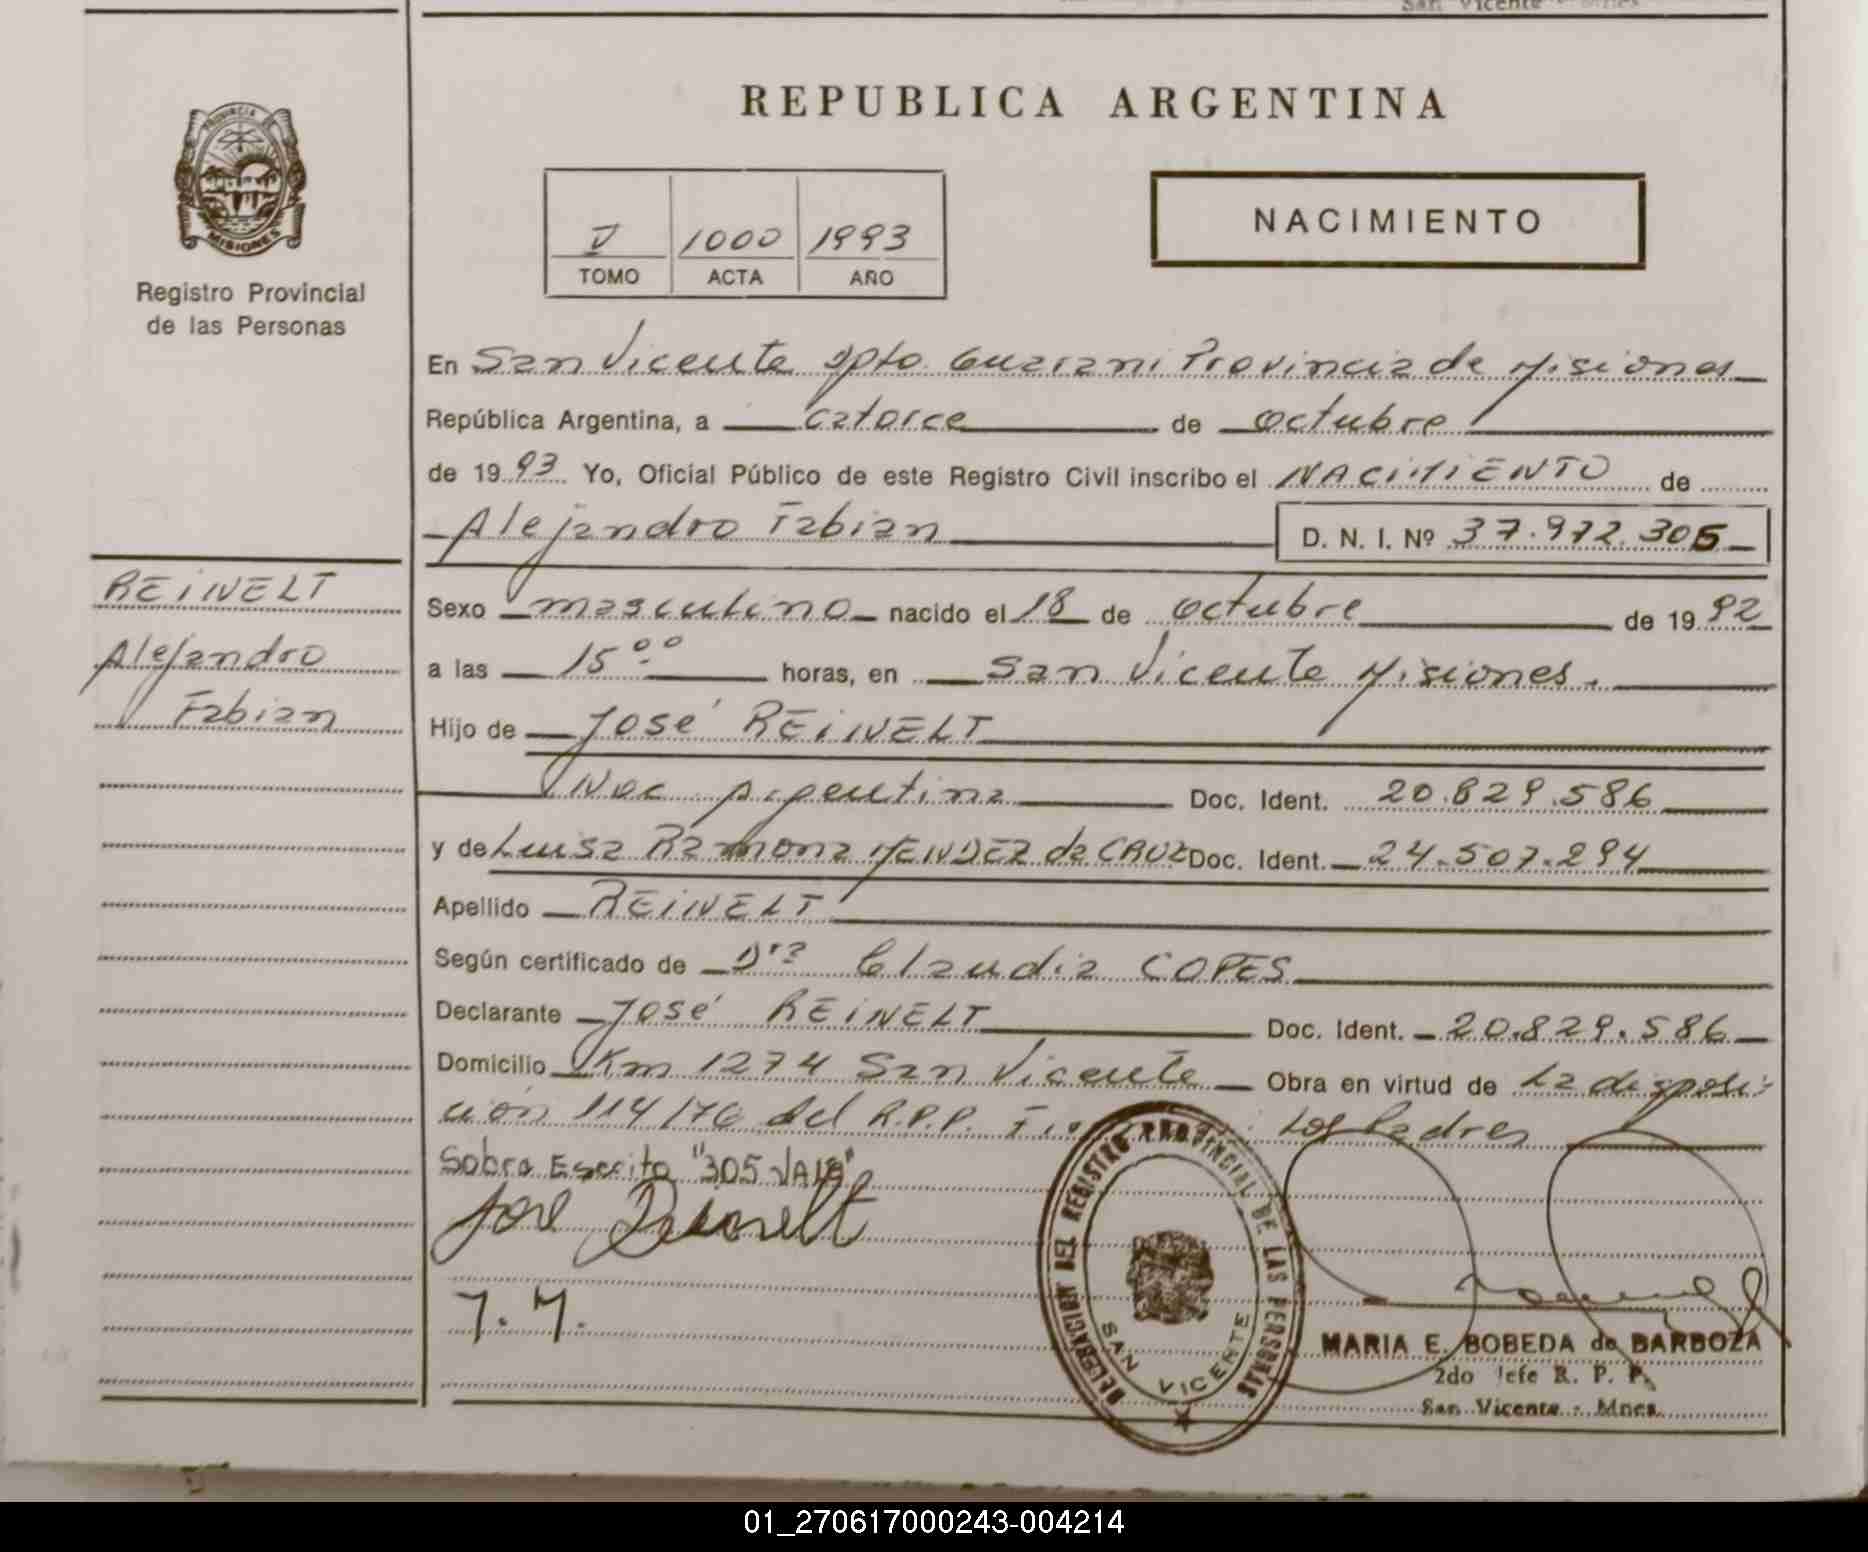 San Vicente - Mnes
REPUBLICA ARGENTINA
PROVINCIA DE
MISIONES
Registro Provincial
de las Personas
V 1000 1993
TOMO ACTA AÑO
NACIMIENTO
En San Vicente Dpto. Guarani Provincia de Misiones
República Argentina, a catorce de octubre
de 1993 Yo, Oficial Público de este Registro Civil inscribo el NACIMIENTO de
Alejandro Fabian D. N. I. Nº 37.972.305
REINELT
Alejandro
Fabian
Sexo masculino nacido el 18 de octubre de 1992
a las 15°° horas, en San Vicente Misiones.
Hijo de José REINELT
Nac Argentina Doc. Ident. 20.829.586
y de Luisa Ramona MENDEZ da CRUZ Doc. Ident. 24.507.294
Apellido REINELT
Según certificado de Dra Claudia COPES
Declarante José REINELT Doc. Ident. 20.829.586
Domicilio Km 1274 San Vicente Obra en virtud de La disposi-
ción 114/76 del R.P.P. Los Padres
Sobre Escrito "305 VALE"
José Reinelt
DELEGACION DEL REGISTRO PROVINCIAL DE LAS PERSONAS
SAN VICENTE
MARIA E. BOBEDA de BARBOZA
2do Jefe R. P. P.
San Vicente - Mnes.
01_270617000243-004214